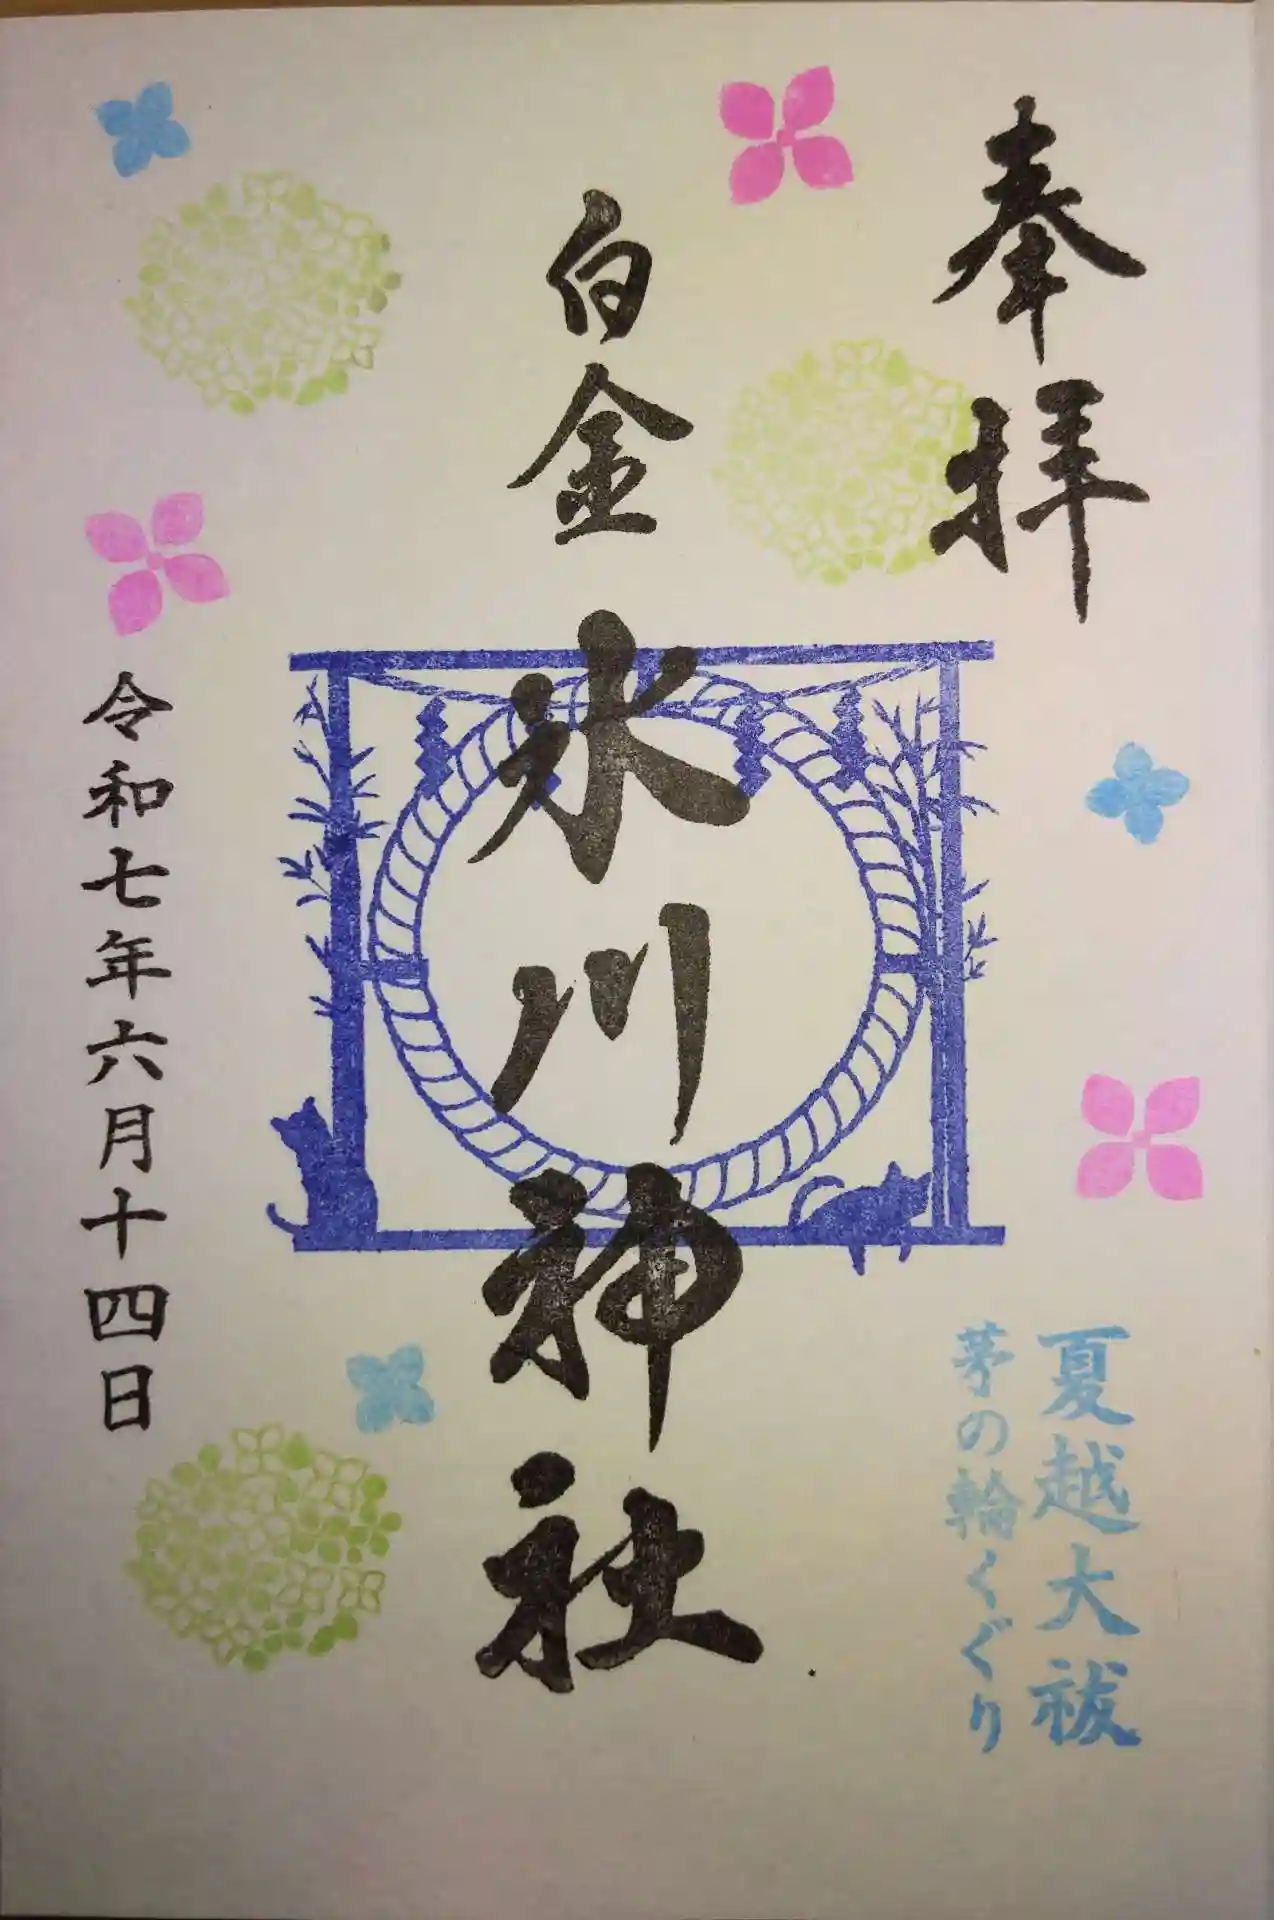 奉拝
夏越大祓
茅の輪くぐり
白金氷川神社
令和七年六月十四日